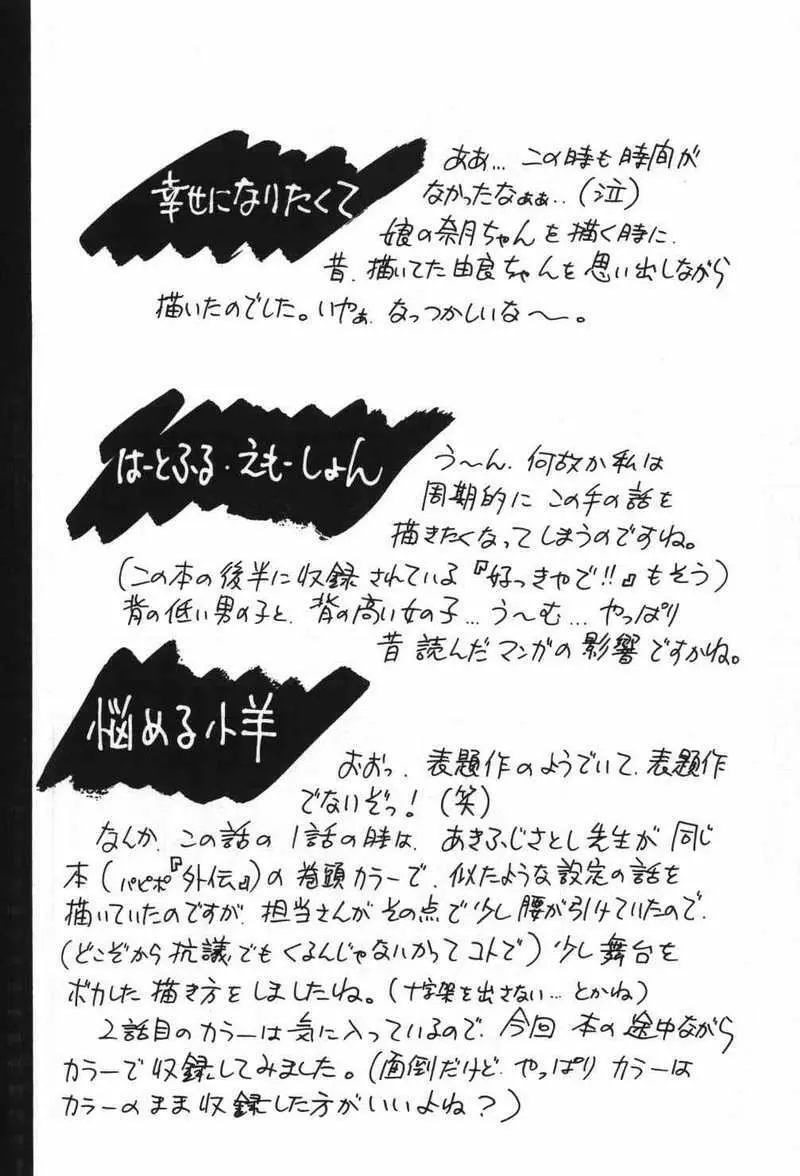 幸せになりたくて
ああ… この時も時間が
なかったなぁぁ..(泣)
娘の奈月ちゃんを描く時に、
昔、描いてた由良ちゃんを思い出しながら
描いたのでした。いやぁ、なっつかしいな〜。
はーとふる・えもーしょん
う〜ん、何故か私は
周期的にこの手の話を
描きたくなってしまうのですね。
(この本の後半に収録されている『好っきゃで!!』もそう)
背の低い男の子と、背の高い女の子…う〜む…やっぱり
昔読んだマンガの影響ですかね。
悩める小羊
おおっ、表題作のようでいて、表題作
でないぞっ!(笑)
なんか、この話の1話の時は、あきふじさとし先生が同じ
本(パピポ『外伝』)の巻頭カラーで、似たような設定の話を
描いていたのですが、担当さんがその点で少し腰が引けていたので、
(どこぞから抗議でもくるんじゃないかってコトで)少し舞台を
ボカした描き方をしましたね。(十字架を出さない…とかね)
2話目のカラーは気に入っているので、今回本の途中ながら
カラーで収録してみました。(面倒だけど、やっぱりカラーは
カラーのまま収録した方がいいよね?)